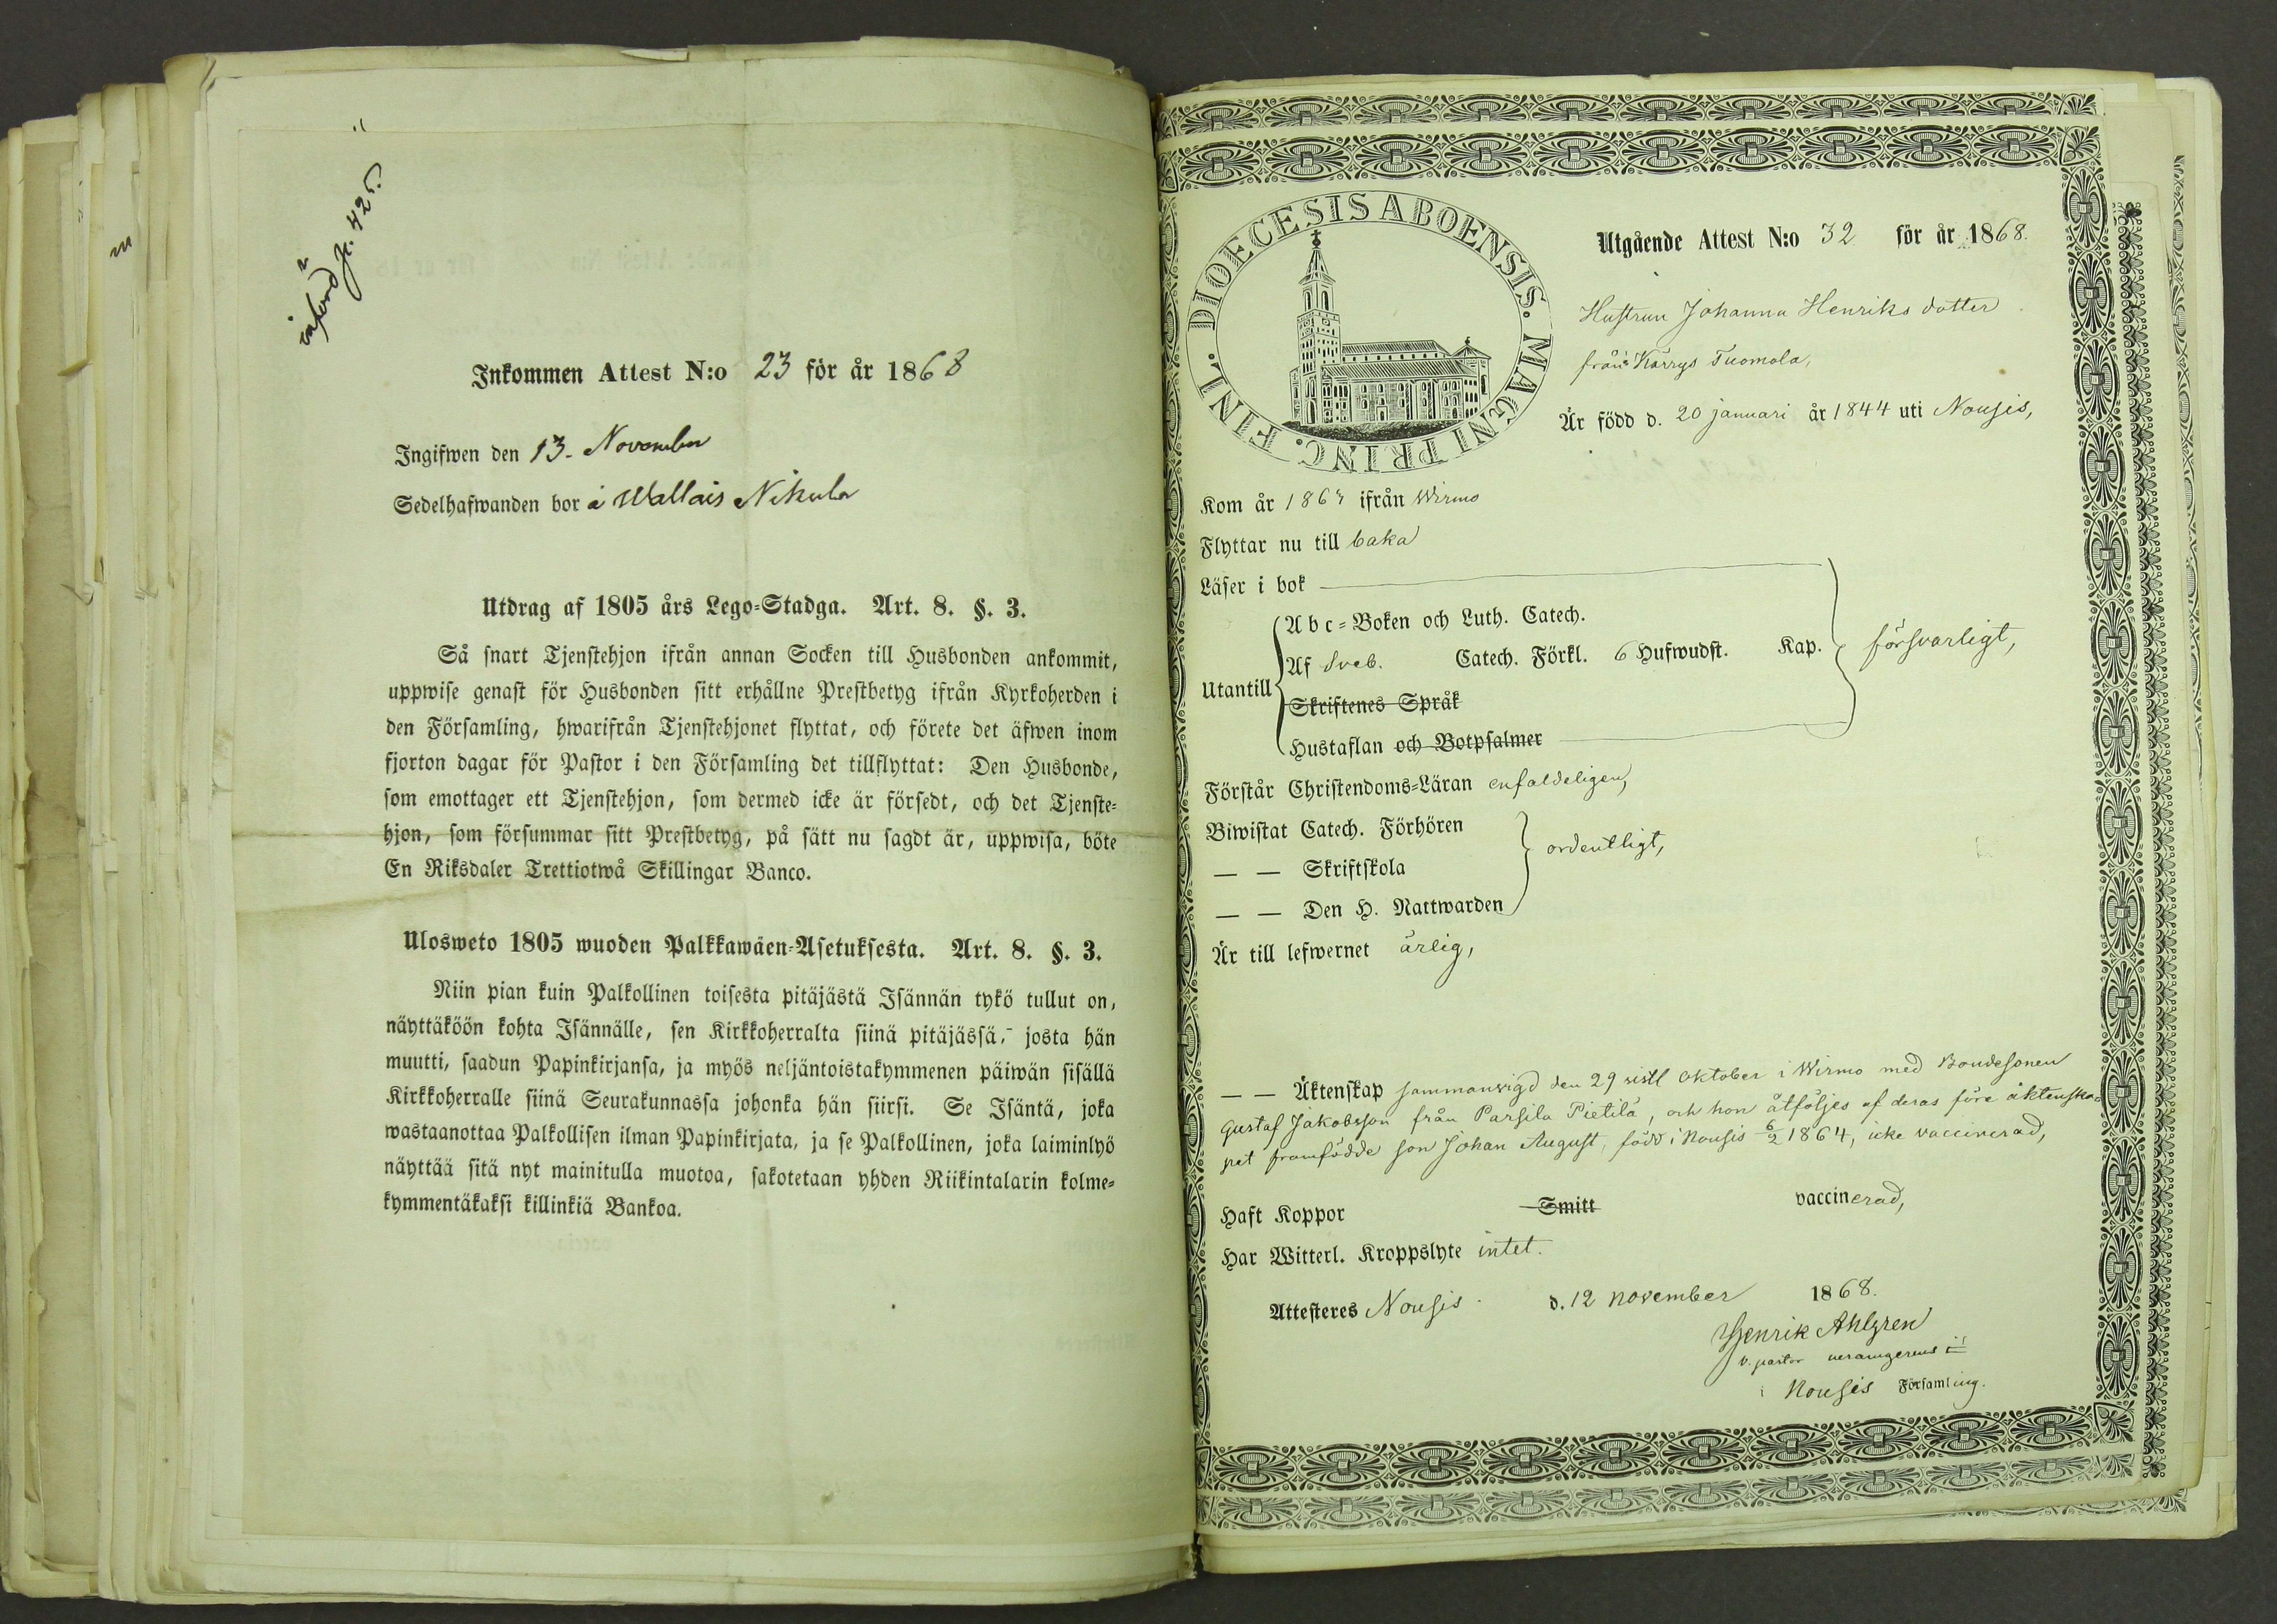 införd p. 425.
Inkommen Attest N:o 23 för år 1868
Ingifwen den 13. November
Sedelhafwanden bor å Wallais Nikula
Utdrag af 1805 års Lego-Stadga. Art. 8. §. 3.
Så snart Tjenstehjon ifrån annan Socken till Husbonden ankommit,
uppwise genast för Husbonden sitt erhållne Prestbetyg ifrån Kyrkoherden i
den Församling, hwarifrån Tjenstehjonet flyttat, och förete det äfwen inom
fjorton dagar för Pastor i den Församling det tillflyttat: Den Husbonde,
som emottager ett Tjenstehjon, som dermed icke är försedt, och det Tjenste-
hjon, som försummar sitt Prestbetyg, på sätt nu sagdt är, uppwisa, böte
En Riksdaler Trettiotwå Skillingar Banco.
Ulosweto 1805 wuoden Palkkawäen-Asetuksesta. Art. 8. §. 3.
Niin pian kuin Palkollinen toisesta pitäjästä Isännän tykö tullut on,
näyttäköön kohta Isännälle, sen Kirkkoherralta siinä pitäjässä, josta hän
muutti, saadun Papinkirjansa, ja myös neljäntoistakymmenen päiwän sisällä
Kirkkoherralle siinä Seurakunnassa johonka hän siirsi. Se Isäntä, joka
wastaanottaa Palkollisen ilman Papinkirjata, ja se Palkollinen, joka laiminlyö
näyttää sitä nyt mainitulla muotoa, sakotetaan yhden Riikintalarin kolme-
kymmentäkaksi killinkiä Bankoa.
DIOECESIS ABOENSIS. MAGNI PRINC. FINL.
Utgående Attest N:o 32 för år 1868.
Hustrun Johanna Henriks dotter
från Kärrys Tuomola,
Är född d. 20 januari år 1844 uti Nousis,
Kom år 1867 ifrån Wirmo
Flyttar nu till baka
Läser i bok
Abc-Boken och Luth. Catech.
Af Sveb. Catech. Förkl. 6 Hufwudst. Kap. försvarligt,
Utantill
Skriftenes Språk
Hustaflan och Botpsalmer
Förstår Christendoms-Läran enfaldeligen,
Biwistat Catech. Förhören
— — Skriftskola ordentligt,
— — Den H. Nattwarden
Är till lefwernet ärlig,
— — Äktenskap sammanvigd den 29 sistl Oktober i Wirmo med Bondesonen
Gustaf Jakobsson från Parsila Pietilä, och hon åtföljes af deras före äktenska-
pet framfödde son Johan August, född i Nousis 6/2 1864, icke vaccinerad,
Haft Koppor Smitt vaccinerad,
Har Witterl. Kroppslyte intet.
Attesteres Nousis d. 12 november 1868.
Henrik Ahlgren
v. pastor
i Nousis Församling.